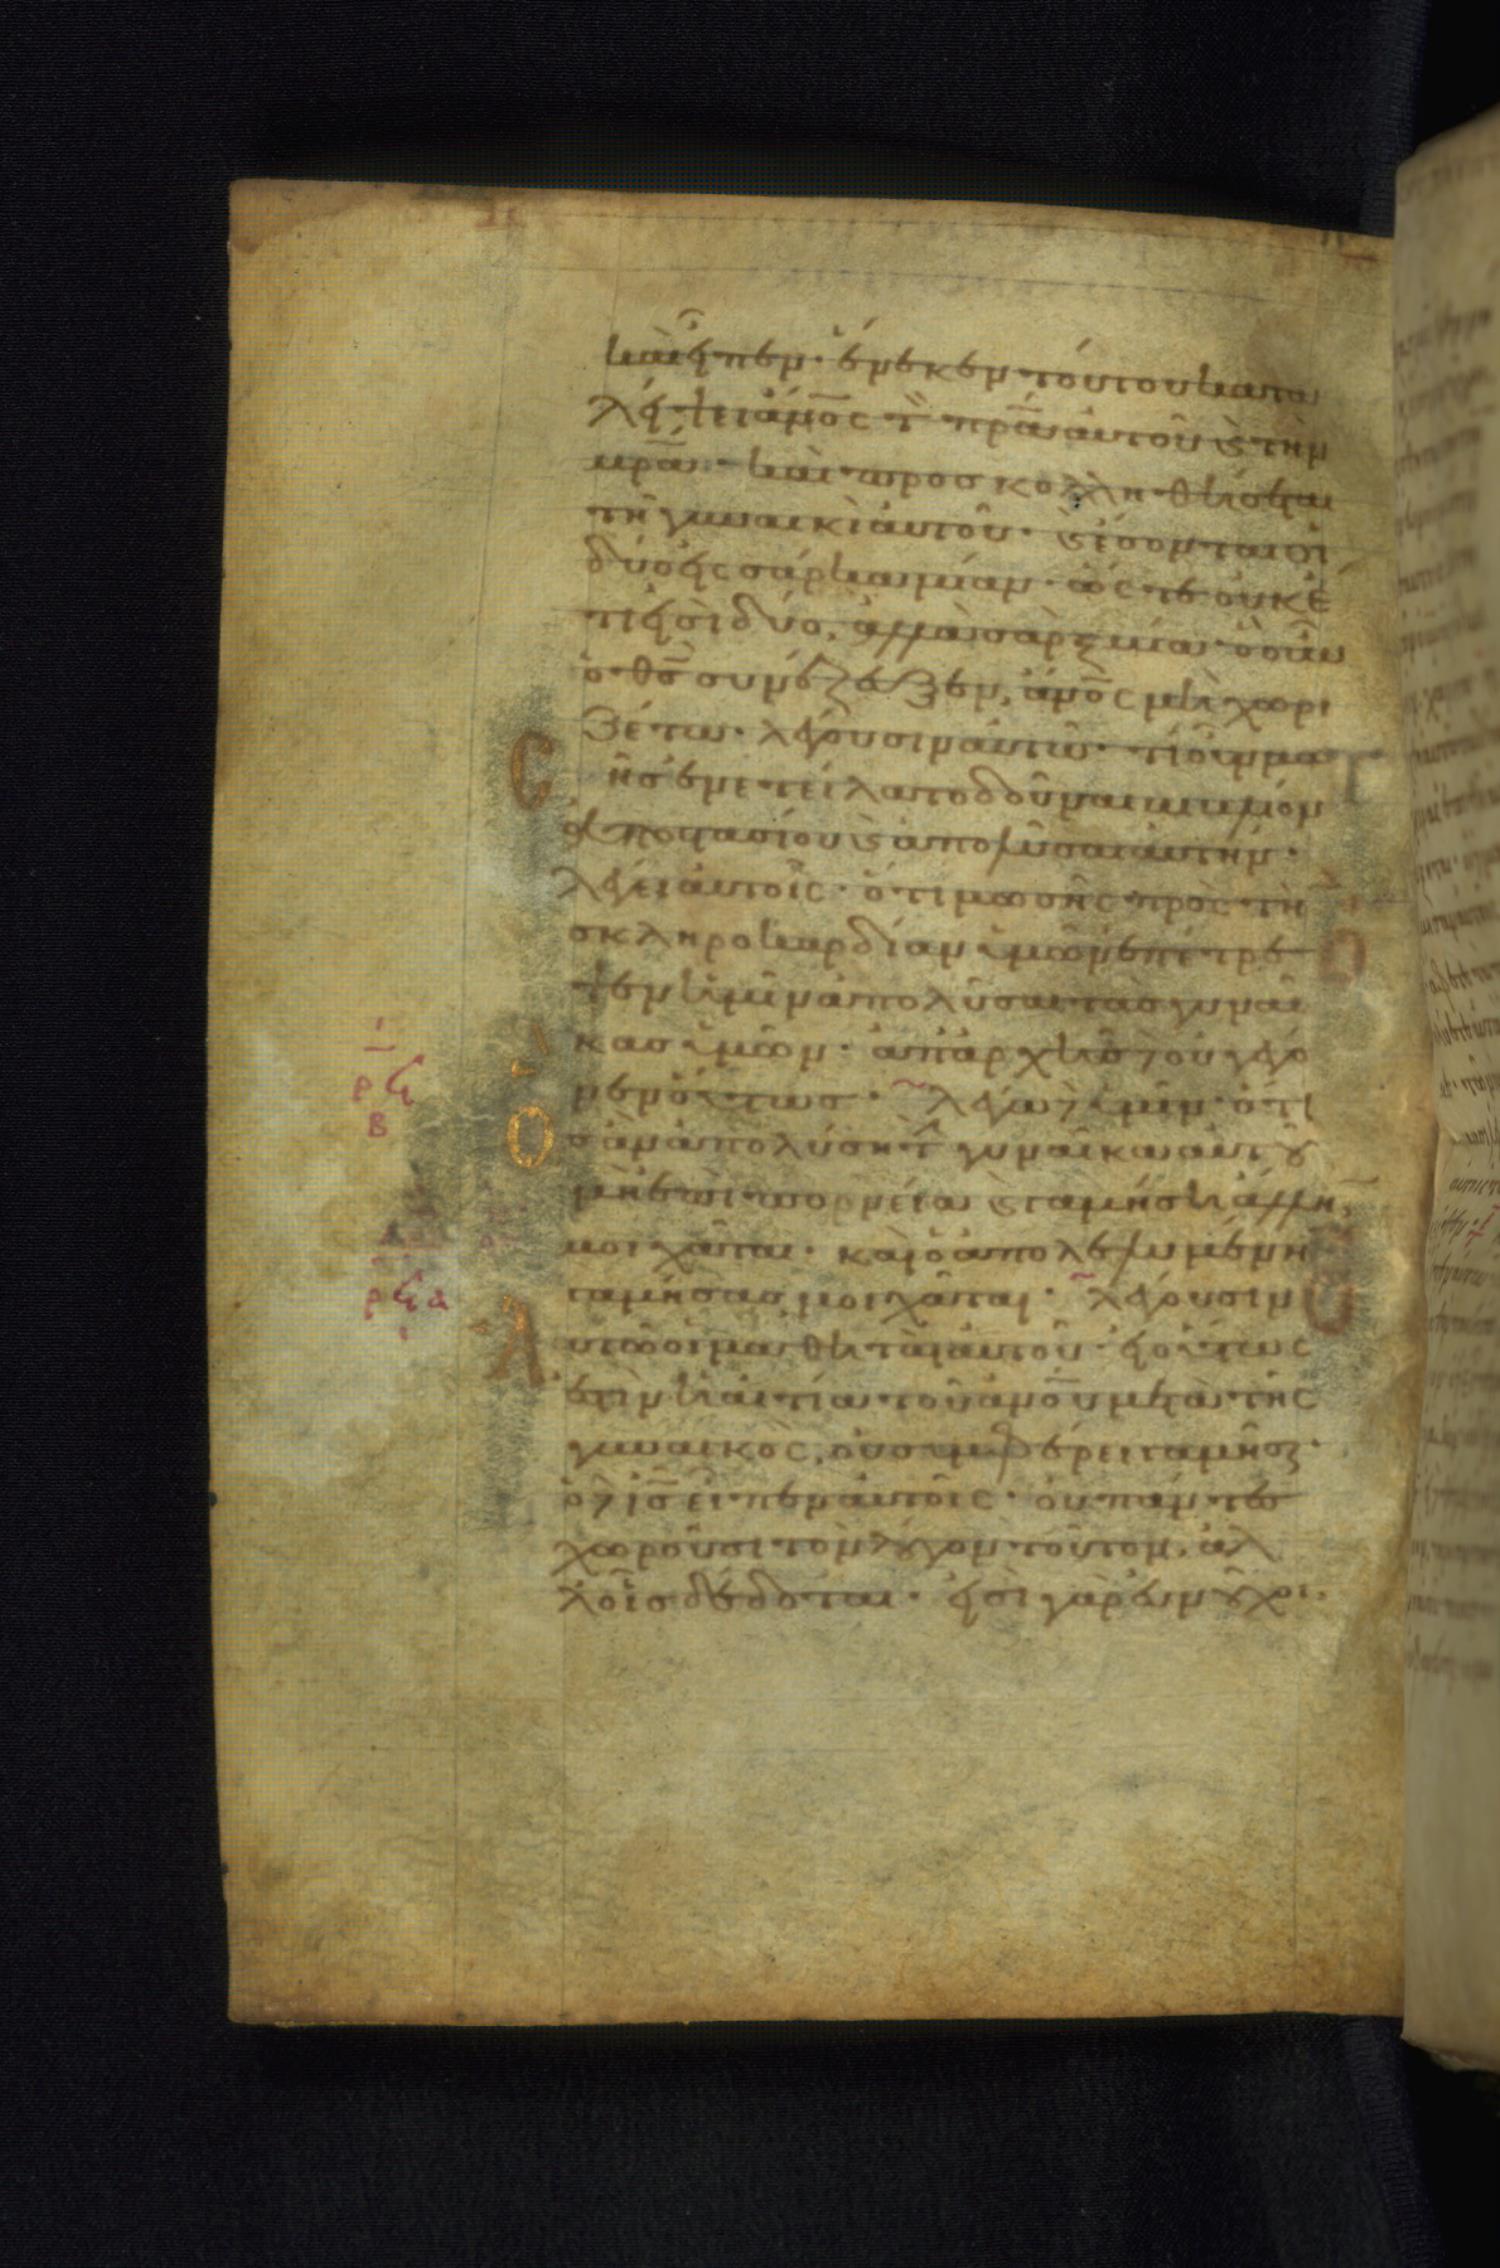 καὶ εἶπεν· ἕνεκεν τούτου κατα
λείψει ἄν̅ο̅ς τ̀ π̅ρ̅α̅ αὐτοῦ ϗ τὴν
μ̅ρ̅α̅· καὶ προσκολληθήσεται
τῇ γυναικὶ αὐτοῦ· ϗ ἔσονται οἱ
δύο εἰς σάρκα μίαν· ὥς τε οὐκέ
τι εἰσὶ δύο, ἀλλὰ σὰρξ μία· ὃ οὖν
ὁ θ̅ς̅ συνέζευξεν, ἄν̅ο̅ς μὴ χωρι
ζέτω· λέγουσιν αὐτῷ· τί οὖν μω
σῆς ἐνετείλατο δοῦναι βιβλίον
ἀποστασίου ϗ ἀπολῦσαι αὐτήν·
λέγει αὐτοῖς· ὅτι μωσῆς πρὸς τὴ̅
σκληροκαρδίαν ὑμῶν ἐπέτρε
ψεν ὑμῖν ἀπολῦσαι τὰς γυναῖ
κας ὑμῶν· ἀπ' ἀρχῆς δὲ οὐ γέγο
νεν οὕτως· λέγω δὲ ὑμῖν· ὅτι
ρϟ
Β
Ὃς ἂν ἀπολύσῃ τ̀ γυναῖκα αὐτοῦ
μὴ ἐπὶ πορνείᾳ ϗ γαμήσῃ ἄλλη̅,
μοιχᾶται· καὶ ὁ ἀπολελυμένην
γαμήσας μοιχᾶται· λέγουσιν
ρϟα
ι
Αὐτῷ οἱ μαθηταὶ αὐτοῦ· εἰ οὕτως
ἐστὶν ἡ αἰτία τοῦ ἀν̅ο̅υ μετὰ τῆς
γυναικὸς, οὐ συμφέρει γαμῆσαι·
ὁ δὲ ι̅ς̅ εἶπεν αὐτοῖς· οὐ πάντες
χωροῦσι τὸν λόγον τοῦτον, ἀλ
λοἷς δέδοται· εἰσὶ γὰρ εὐνοῦχοι